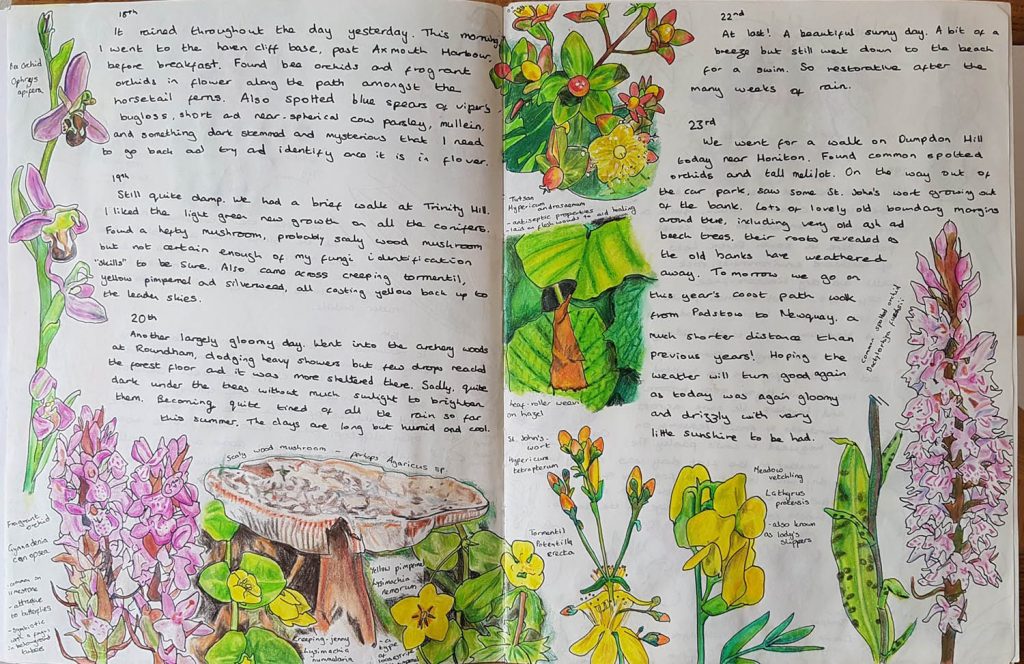 18th
It rained throughout the day yesterday. This morning
I went to the haven cliff base, past Axmouth Harbour,
before breakfast. Found bee orchids and fragrant
orchids in flower along the path amongst the
horsetail ferns. Also spotted blue spears of viper's
bugloss, short and near-spherical cow parsley, mullein,
and something dark stemmed and mysterious that I need
to go back and try and identify once it is in flower.
19th
Still quite damp. We had a brief walk at Trinity Hill.
I liked the light green new growth on all the conifers.
Found a hefty mushroom, probably scaly wood mushroom
but not certain enough of my fungi identification
"skills" to be sure. Also came across creeping tormentil,
yellow pimpernel and silverweed, all casting yellow back up to
the leaden skies.
20th
Another largely gloomy day. Went into the archery woods
at Roundham, dodging heavy showers but few drops reached
the forest floor and it was more sheltered there. Sadly, quite
dark under the trees without much sunlight to brighten
them. Becoming quite tired of all the rain so far
this summer. The days are long but humid and cool.
Bee Orchid
Ophrys
apifera
Fragrant
orchid
Gymnadenia
conopsea
- common on
limestone
- attractive
to butterflies
- symbiotic
with a fungi
in below ground
tubers
Scaly wood mushroom - perhaps Agaricus sp.
Creeping-jenny
Lysimachia
nummularia
Yellow pimpernel
Lysimachia
nemorum
- a
type
of
loosestrife
22nd
At last! A beautiful sunny day. A bit of a
breeze but still went down to the beach
for a swim. So restorative after the
many weeks of rain.
23rd
We went for a walk on Dumpdon Hill
today near Honiton. Found common spotted
orchids and tall melilot. On the way out of
the car park, saw some St. John's wort growing out
of the bank. Lots of lovely old boundary margins
around there, including very old ash and
beech trees, their roots revealed as
the old banks have weathered
away. Tomorrow we go on
this year's coast path walk
from Padstow to Newquay, a
much shorter distance than
previous years! Hoping the
weather will turn good again
as today was again gloomy
and drizzly with very
little sunshine to be had.
Tutsan
Hypericum androsaemum
- antiseptic properties
- laid on flesh wounds to aid healing
Leaf-roller weevil
on hazel
St. John's-
wort
Hypericum
tetrapterum
Tormentil
Potentilla
erecta
Meadow
vetchling
Lathyrus
pratensis
- also known
as lady's
slippers
Common spotted orchid
Dactylorhiza fuchsii